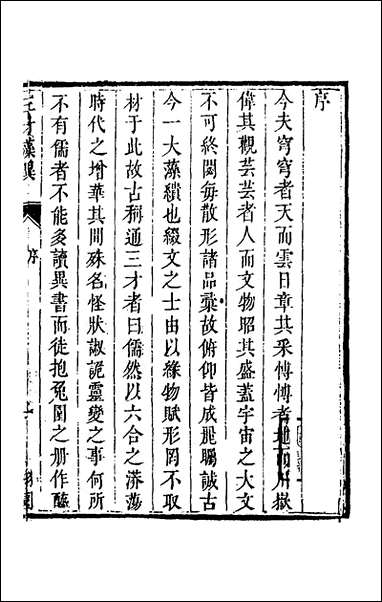 序
今夫穹穹者天而雲日章其采慱慱者地而川嶽
偉其觀芸芸者人而文物昭其盛蓋宇宙之大文
不可終閟每散形諸品彙故俯仰皆成麗矚誠古
今一大藻繢也綴文之士由以緣物賦形罔不取
材于此故古稱通三才者曰儒然以六合之漭蕩
時代之增華其間殊名怪狀淑詭靈變之事何所
不有儒者不能多讀異書而徒抱兔園之册作醯
三才藻異
序